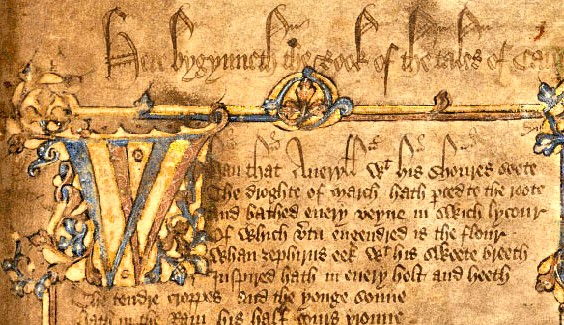 Here bygynneth the Book of the tales of Can
Whan that Aueryll wt his shoures soote
The droghte of march hath perced to the roote
And bathed euery veyne in swich lycour
Of which vtu engendred is the flour
Whan zephirus eek wt his sweete breeth
Inspired hath in euery holt and heeth
The tendre croppes and the yonge sonne
Hath in the Ram his half cours yronne